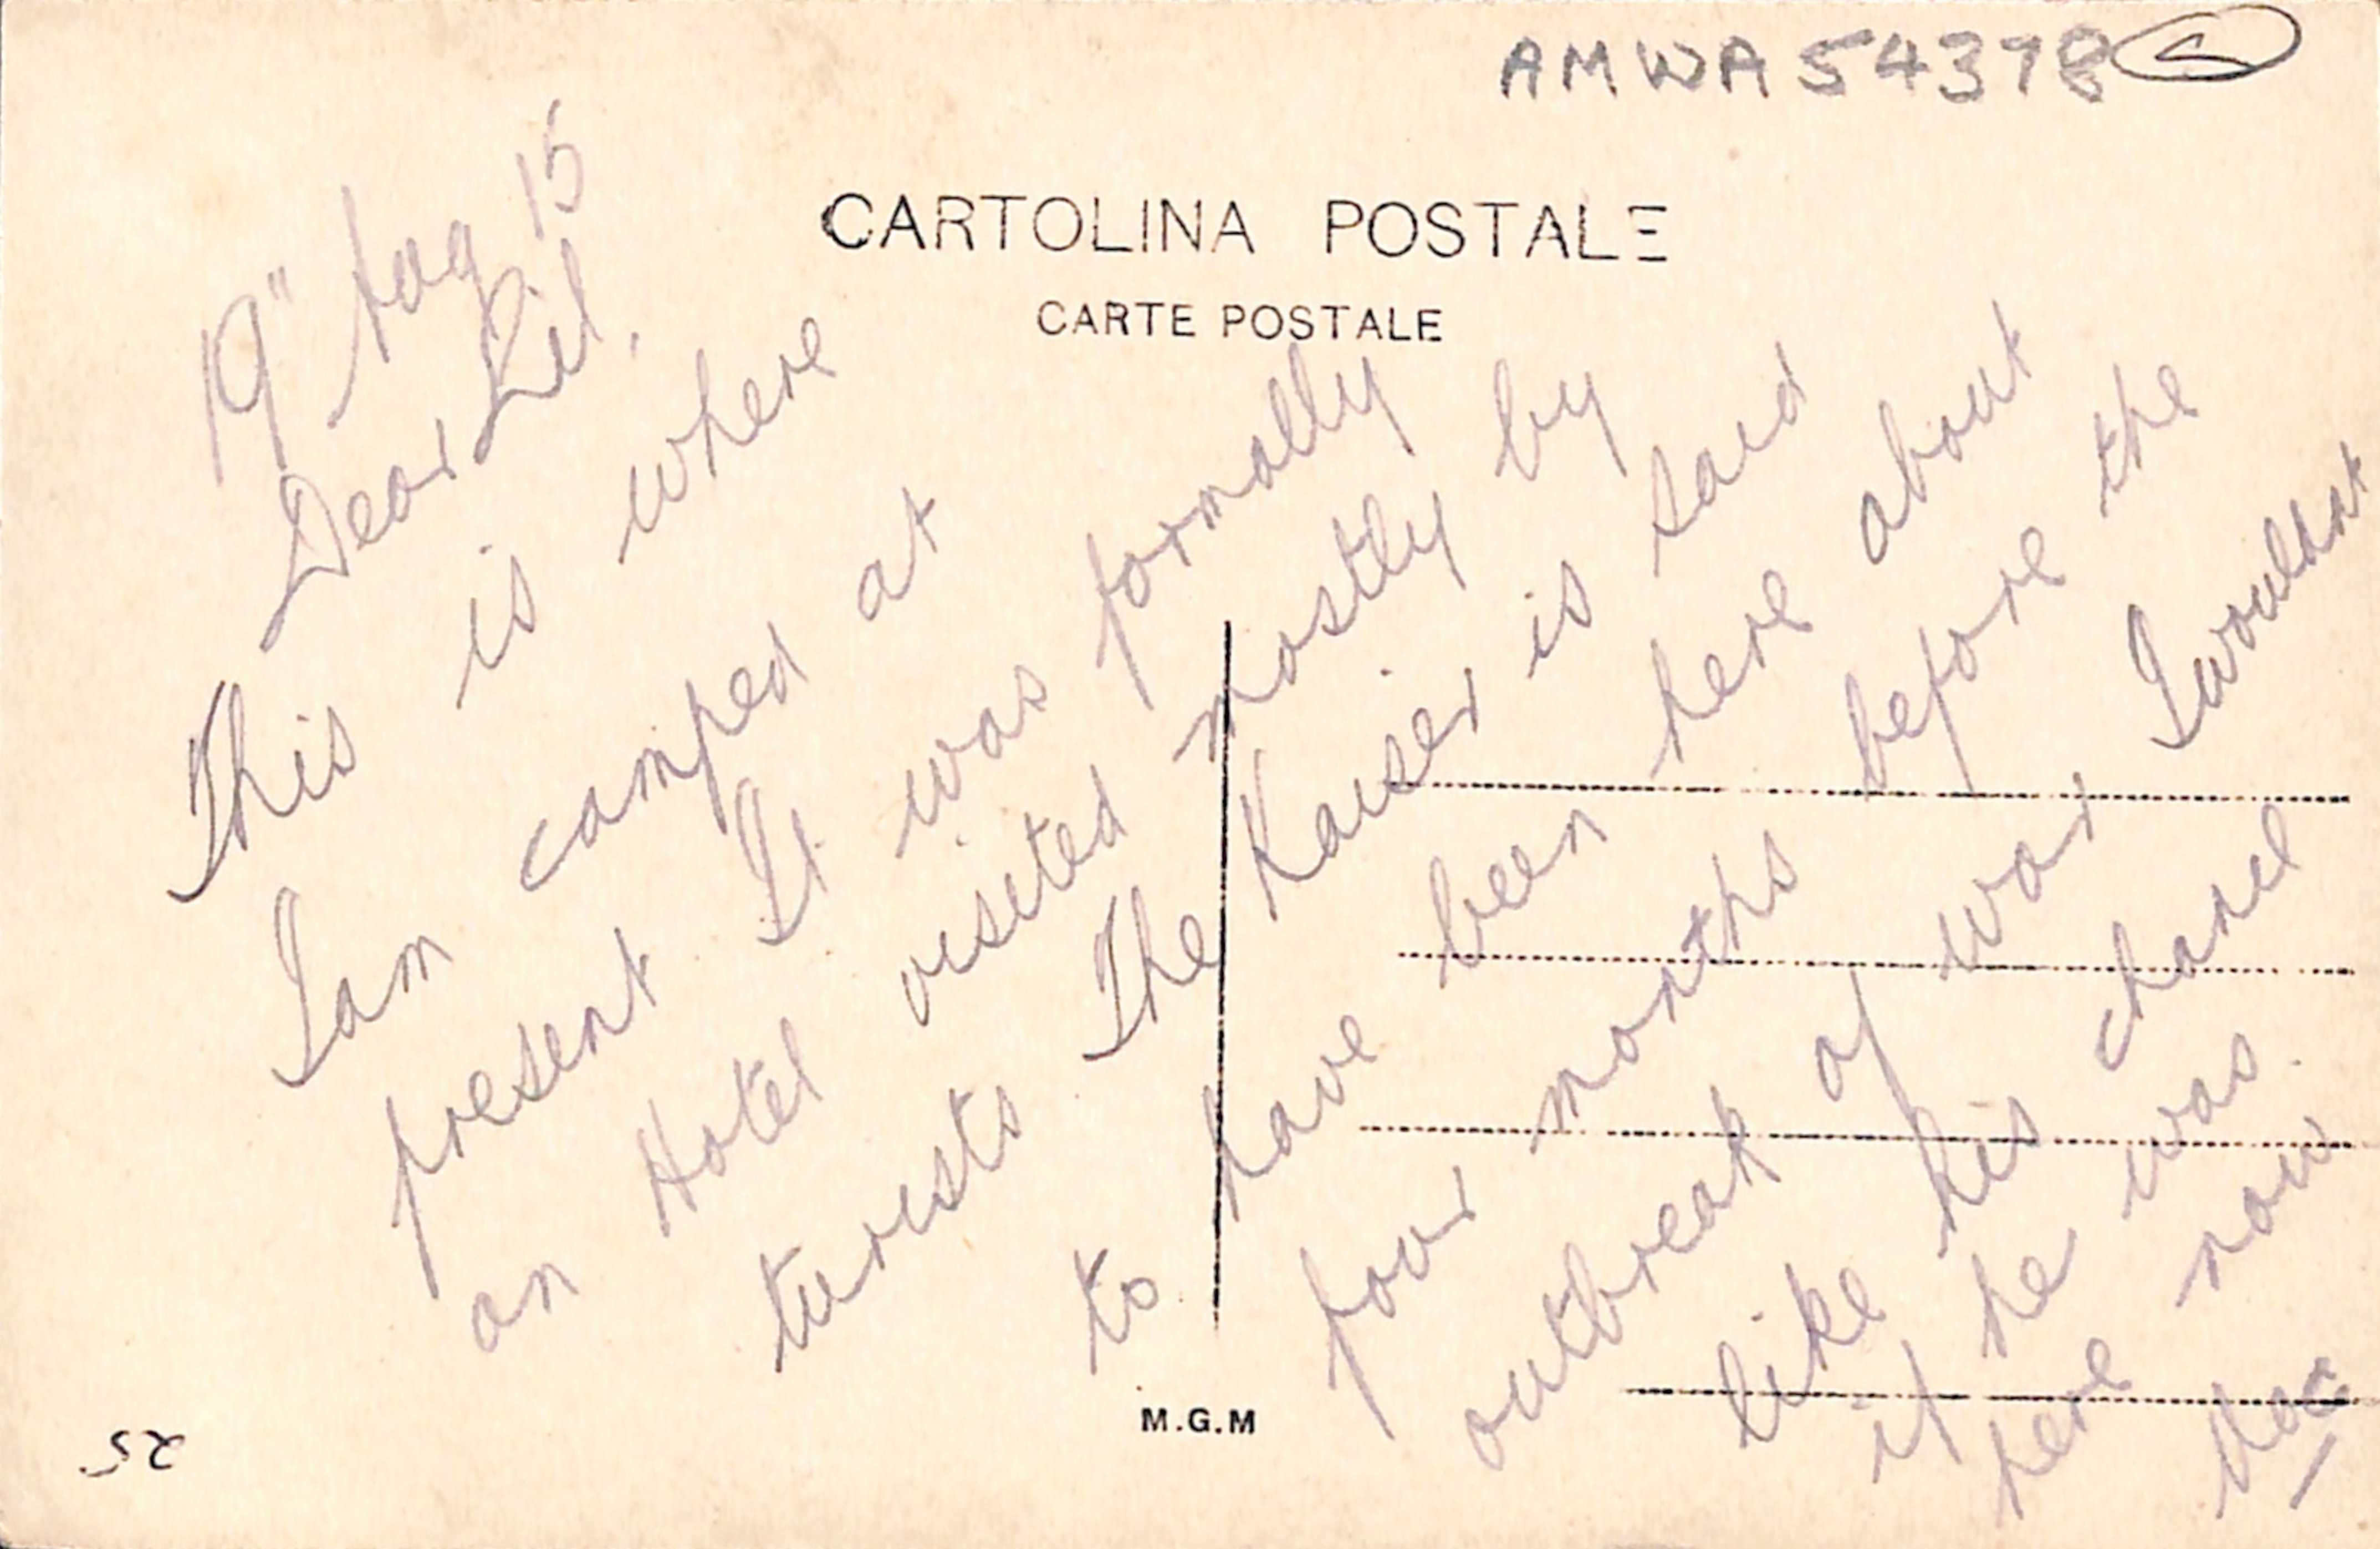 AMWA54378 5
CARTOLINA POSTALE
CARTE POSTALE
19" Aug 15
Dear Lil.
This is where
I am camped at
present It was formally
an Hotel viseted mostly by
turists The Kaiser is said
to have been here about
four months before the
outbreak of war I wouldnt
like his chance
if he was.
here now
M.G.M
25